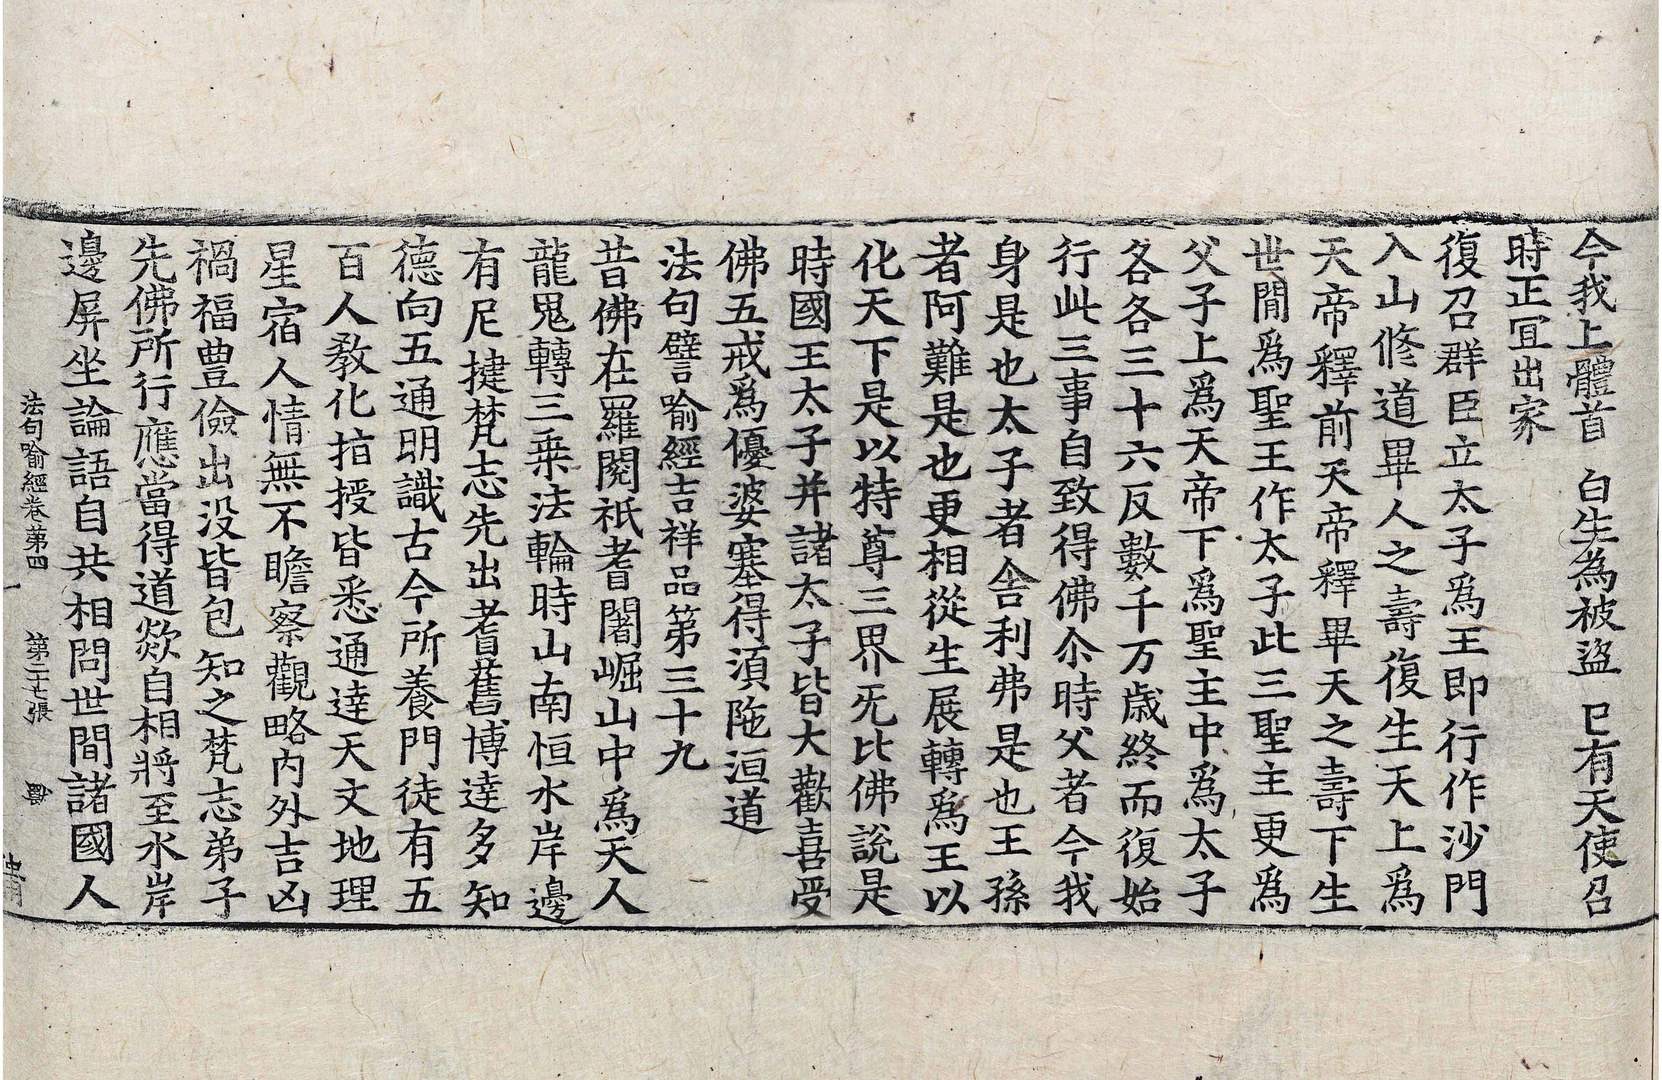 今我上體首　白生為被盜　已有天使召
時正冝出家
復召群臣立太子爲王即行作沙門
入山修道畢人之壽復生天上爲
天帝釋前天帝釋畢天之壽下生
世閒爲聖王作太子此三聖主更爲
父子上爲天帝下爲聖主中爲太子
各各三十六反數千万歳終而復始
行此三事自致得佛尒時父者今我
身是也太子者舎利弗是也王孫
者阿難是也更相從生展轉爲王以
化天下是以特尊三界无比佛說是
時國王太子并諸太子皆大歡喜受
佛五戒爲優婆塞得湏陁洹道
法句譬喻經吉祥品第三十九
昔佛在羅閱祇耆闍崛山中爲天人
龍鬼轉三乗法輪時山南恒水岸邊
有尼揵梵志先出耆舊博達多知
德向五通明識古今所養門徒有五
百人教化指授皆悉通達天文地理
星宿人情無不瞻察觀略内外吉凶
禍福豊儉出没皆包知之梵志弟子
先佛所行應當得道欻自相將至水岸
邊屏坐論語自共相問世間諸國人
法句喻經卷第四　第二十七張